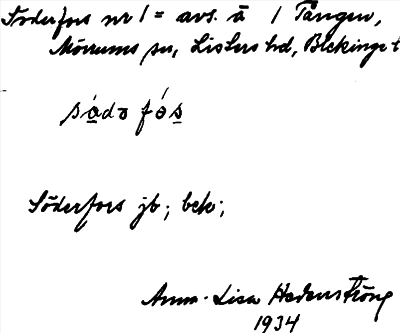 Söderfors nr 1 = avs. å 1 Tången,
Mörrums sn, Listers hd, Blekinge l
södə fós
Söderfors jb; bek;
Anna-Lisa Hedenström
1934